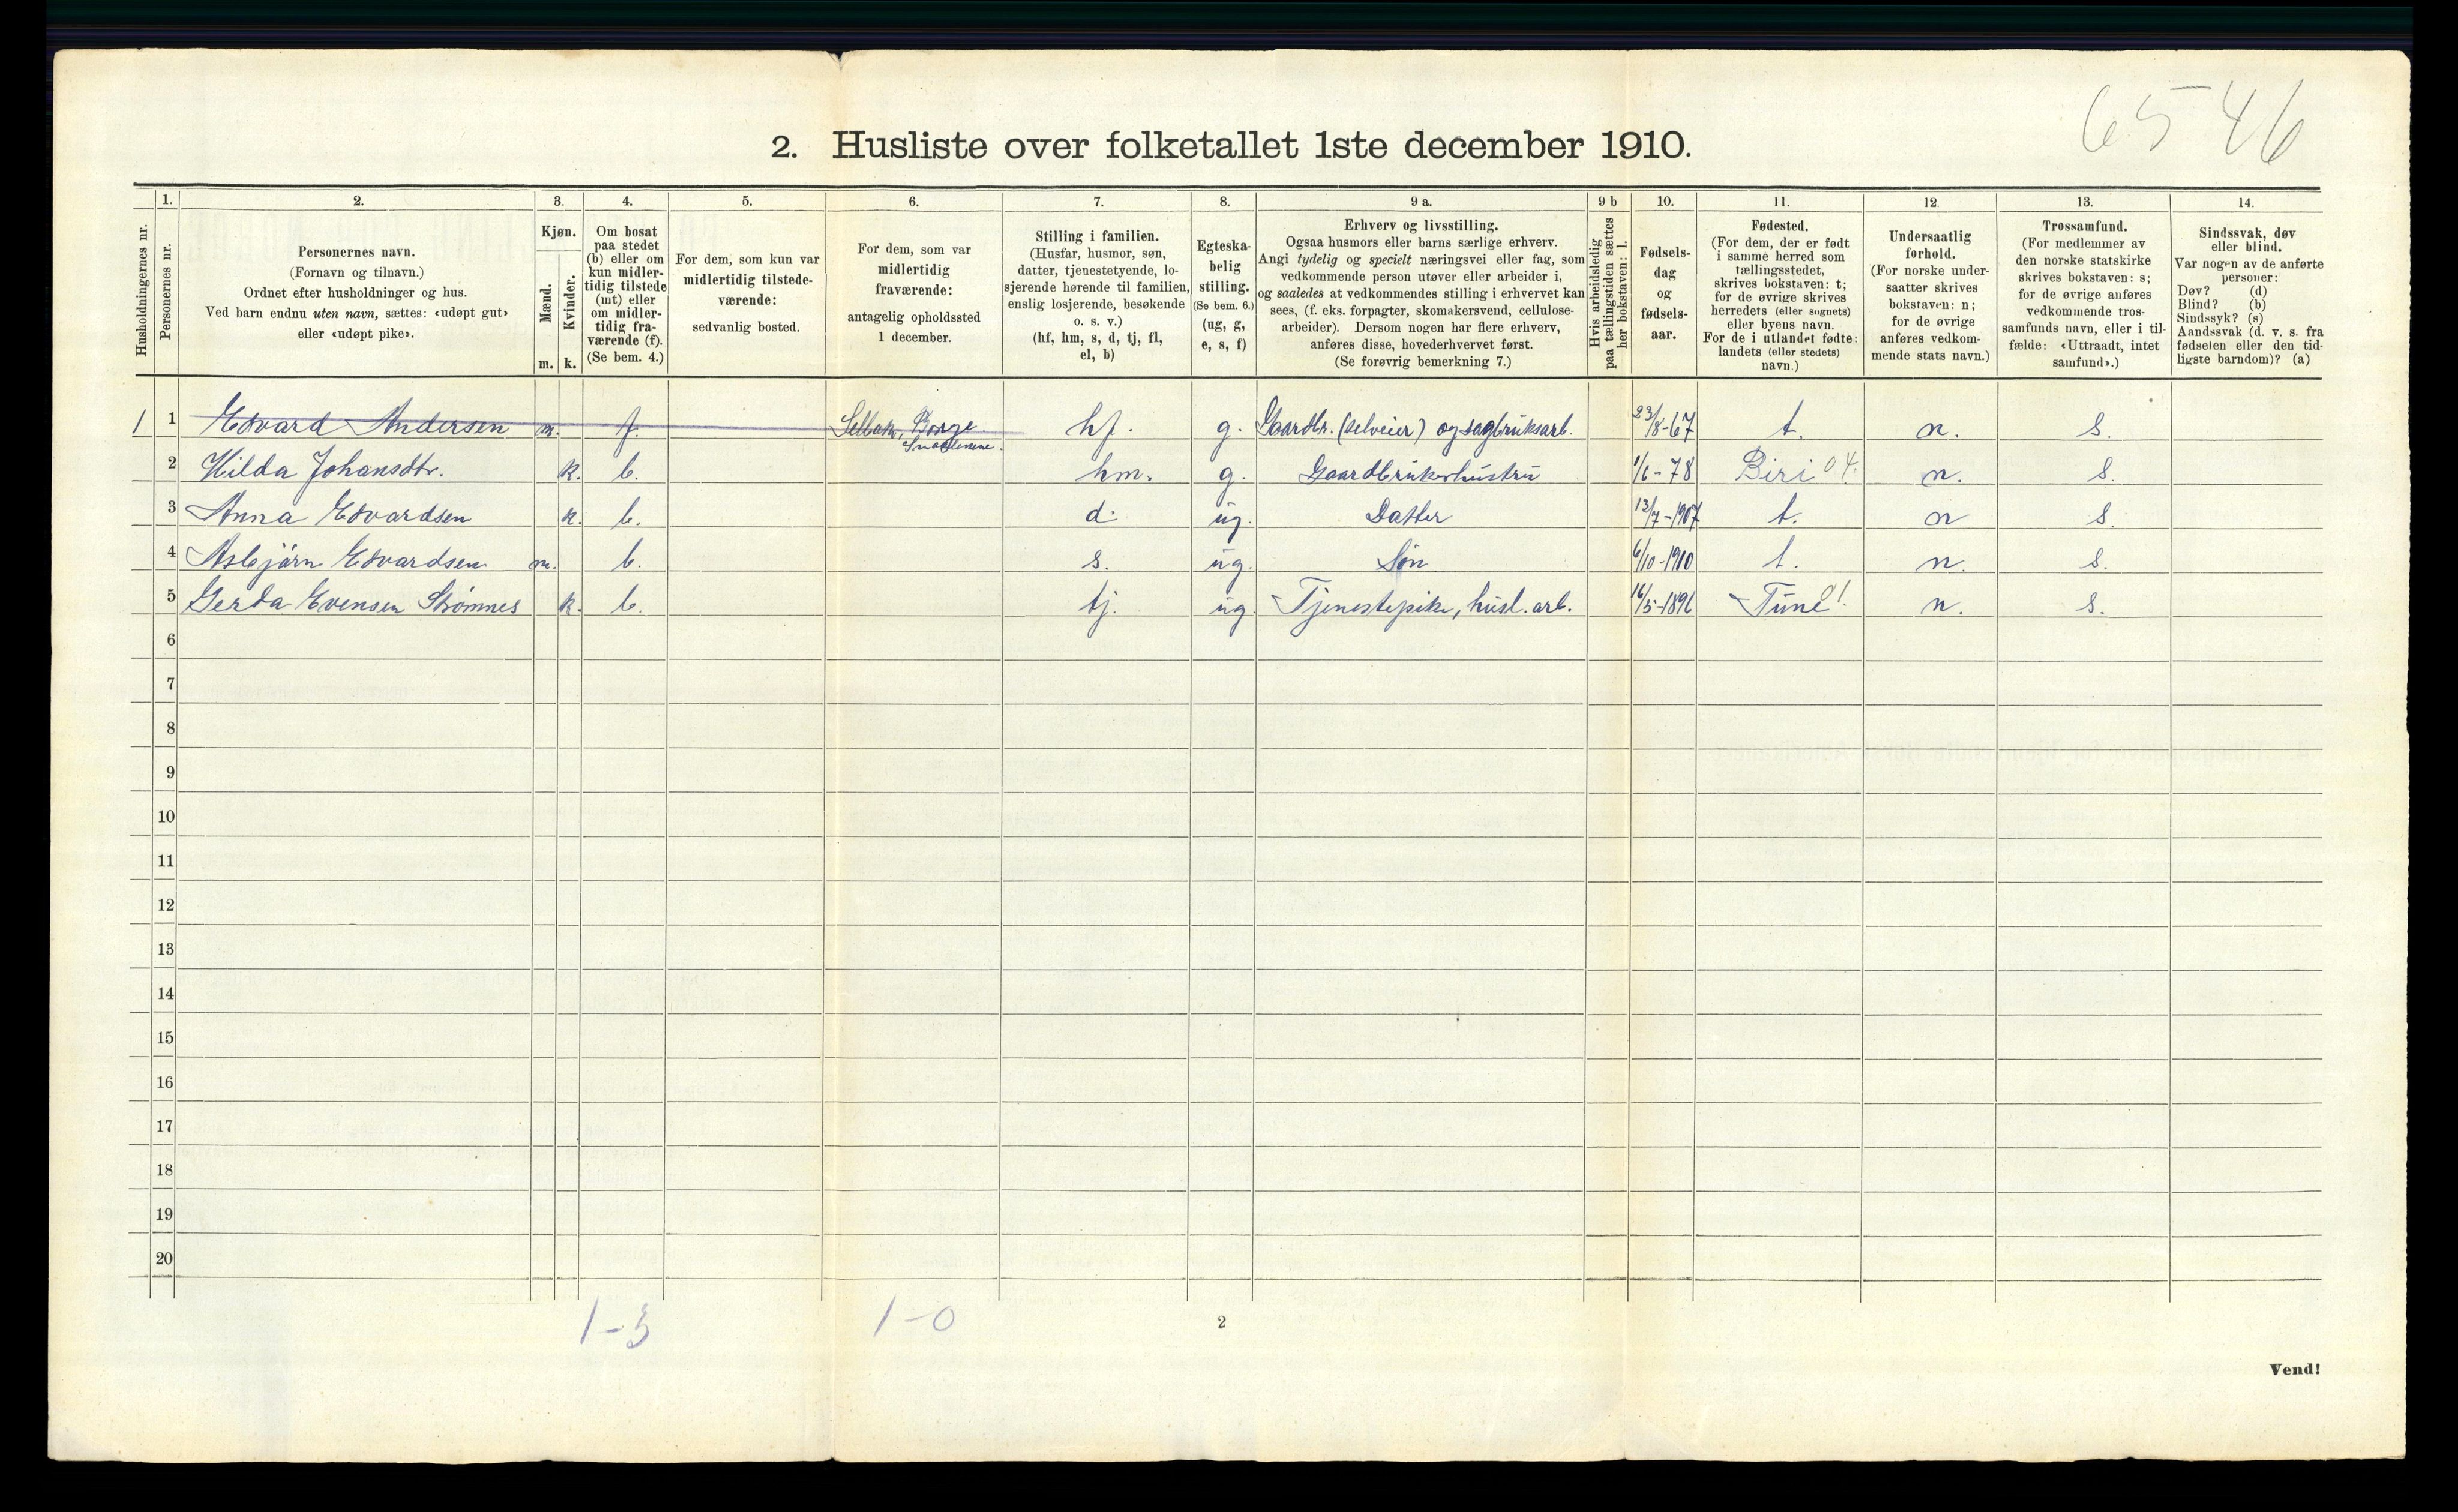 6546
2. Husliste over folketallet 1ste december 1910.
Husholdningernes nr.
1.
Personernes nr.
2.
Personernes navn.
(Fornavn og tilnavn.)
Ordnet efter husholdninger og hus.
Ved barn endnu uten navn, sættes: «udøpt gut»
eller «udøpt pike».
3.
Kjøn.
Mænd.
Kvinder.
m. k.
4.
Om bosat
paa stedet
(b) eller om
kun midler-
tidig tilstede
(mt) eller
om midler-
tidig fra-
værende (f).
(Se bem. 4.)
5.
For dem, som kun var
midlertidig tilstede-
værende:
sedvanlig bosted.
6.
For dem, som var
midlertidig
fraværende:
antagelig opholdssted
1 december.
7.
Stilling i familien.
(Husfar, husmor, søn,
datter, tjenestetyende, lo-
sjerende hørende til familien,
enslig losjerende, besøkende
o. s. v.)
(hf, hm, s, d, tj, fl,
el, b)
8.
Egteska-
belig
stilling.
(Se bem. 6.)
(ug, g,
e, s, f)
9 a.
Erhverv og livsstilling.
Ogsaa husmors eller barns særlige erhverv.
Angi tydelig og specielt næringsvei eller fag, som
vedkommende person utøver eller arbeider i,
og saaledes at vedkommendes stilling i erhvervet kan
sees, (f. eks. forpagter, skomakersvend, cellulose-
arbeider). Dersom nogen har flere erhverv,
anføres disse, hovederhvervet først.
(Se forøvrig bemerkning 7.)
9 b
Hvis arbeidsledig
paa tællingstiden sættes
her bokstaven: l.
10.
Fødsels-
dag
og
fødsels-
aar.
11.
Fødested.
(For dem, der er født
i samme herred som
tællingsstedet,
skrives bokstaven: t;
for de øvrige skrives
herredets (eller sognets)
eller byens navn.
For de i utlandet fødte:
landets (eller stedets)
navn.)
12.
Undersaatlig
forhold.
(For norske under-
saatter skrives
bokstaven: n;
for de øvrige
anføres vedkom-
mende stats navn.)
13.
Trossamfund.
(For medlemmer av
den norske statskirke
skrives bokstaven: s;
for de øvrige anføres
vedkommende tros-
samfunds navn, eller i til-
fælde: «Uttraadt, intet
samfund».)
14.
Sindssvak, døv
eller blind.
Var nogen av de anførte
personer:
Døv? (d)
Blind? (b)
Sindssyk? (s)
Aandssvak (d. v. s. fra
fødselen eller den tid-
ligste barndom)? (a)
1 1 Edvard Andersen m. f. Selbak, Borge hf. g. Gaardbr. (selveier) og sagbruksarb. 23/8-67 t. n. s.
2 Hilda Johansdtr. k. b. hm. g. Gaardbrukerhustru 1/6-78 Biri 04. n. s.
3 Anna Edvardsen k. b. d. ug. Datter 13/7-1907 t. n s.
4 Asbjørn Edvardsen m. b. s. ug. Søn 6/10-1910 t. n. s.
5 Gerda Evensen Strømnes k. b. tj. ug. Tjenestepike, husl. arb. 16/5-1896 Tune 01. n. s.
6
7
8
9
10
11
12
13
14
15
16
17
18
19
20
1-3 1-0
2
Vend!